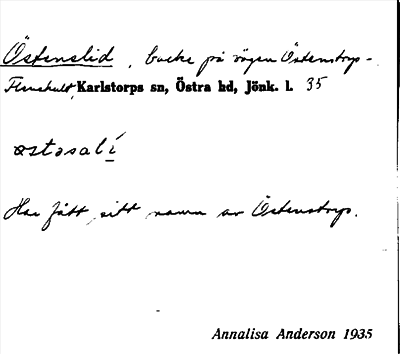 Östenslid, backe på vägen Östenstorp-
Flenshult, Karlstorps sn, Östra hd, Jönk. l. 35
östəsalí
Har fått sitt namn av Östenstorp.
Annalisa Anderson 1935